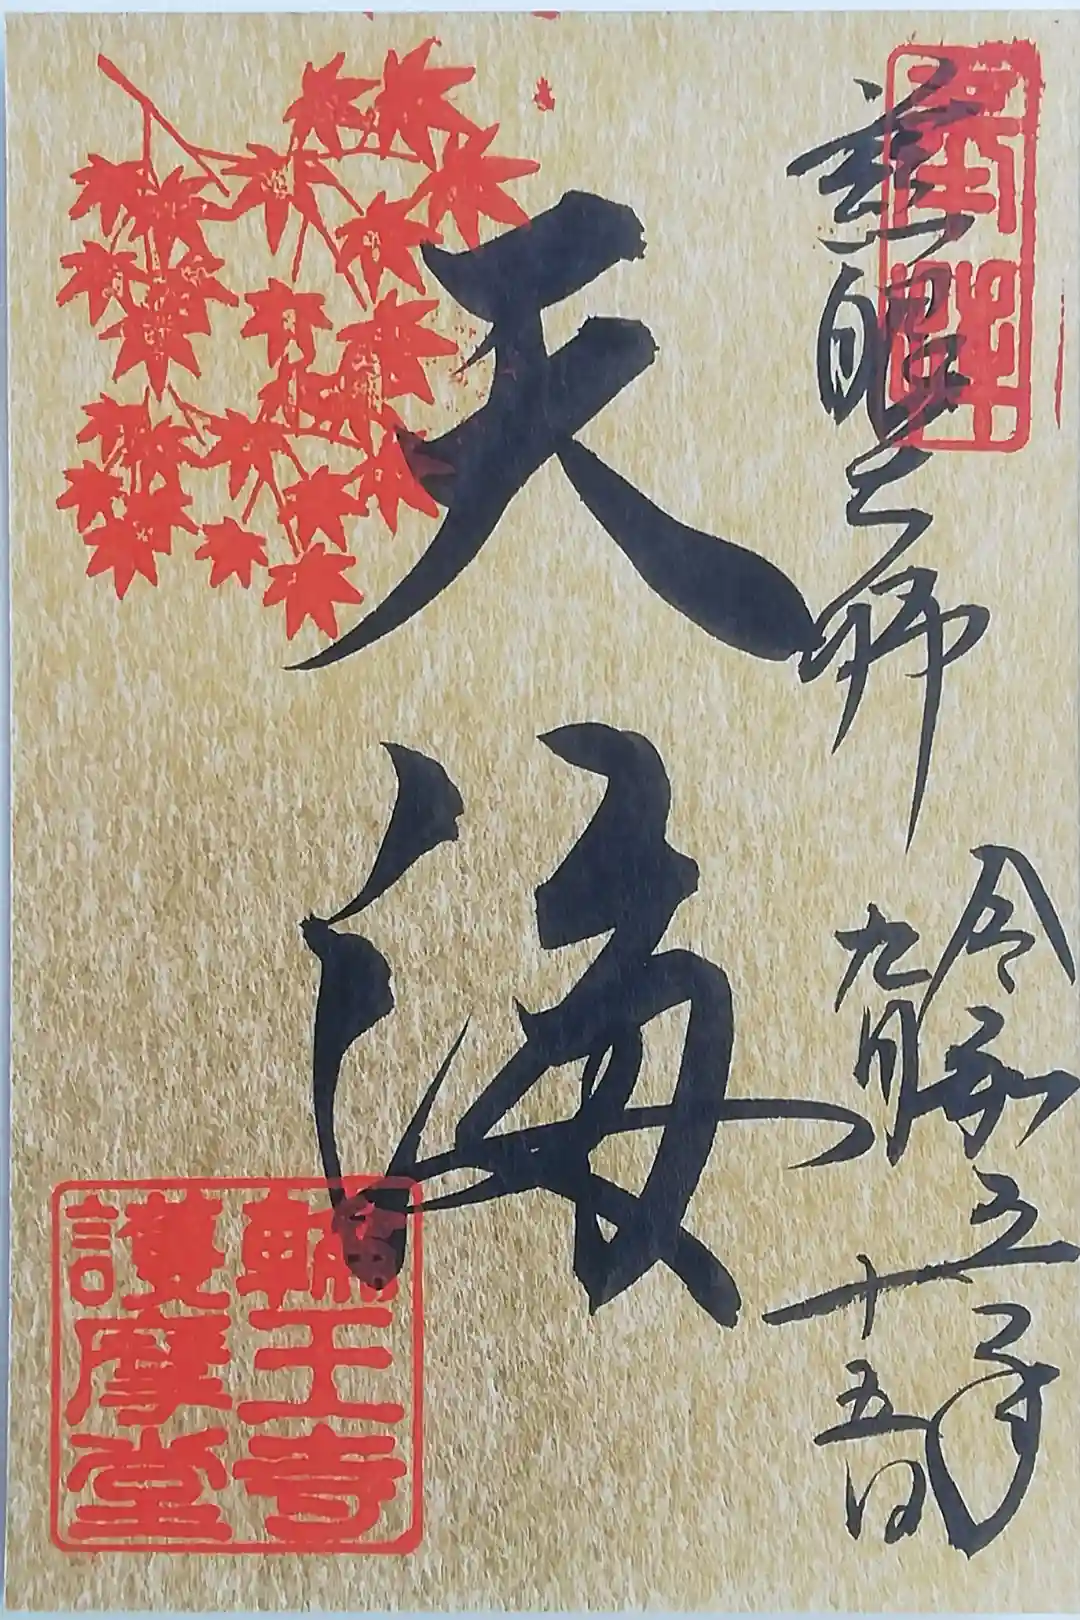 奉拝
慈眼大師
令和五年
九月十五日
天海
輪王寺
護摩堂